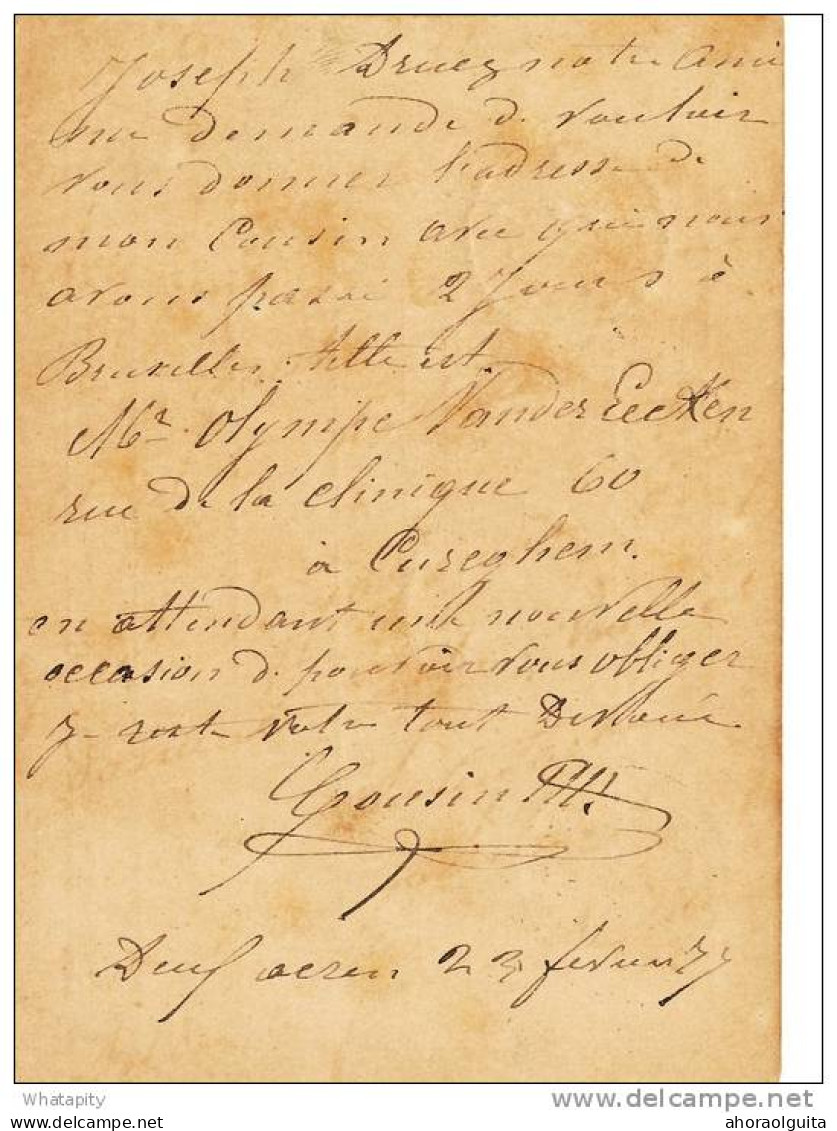 Joseph Druez notre ami
me demande de vouloir
vous donner l'adresse de
mon Cousin avec qui nous
avons passé 2 Jours à
Bruxelles. telle est
Mr. Olympe Vander Eecken
rue de la clinique 60
à Cureghem.
en attendant une nouvelle
occasion de pouvoir vous obliger
Je reste votre tout Dévoué.
Cousin
Deux acren 23 fevrier 77
Whatapity
delcampe.net
ahoraolguita